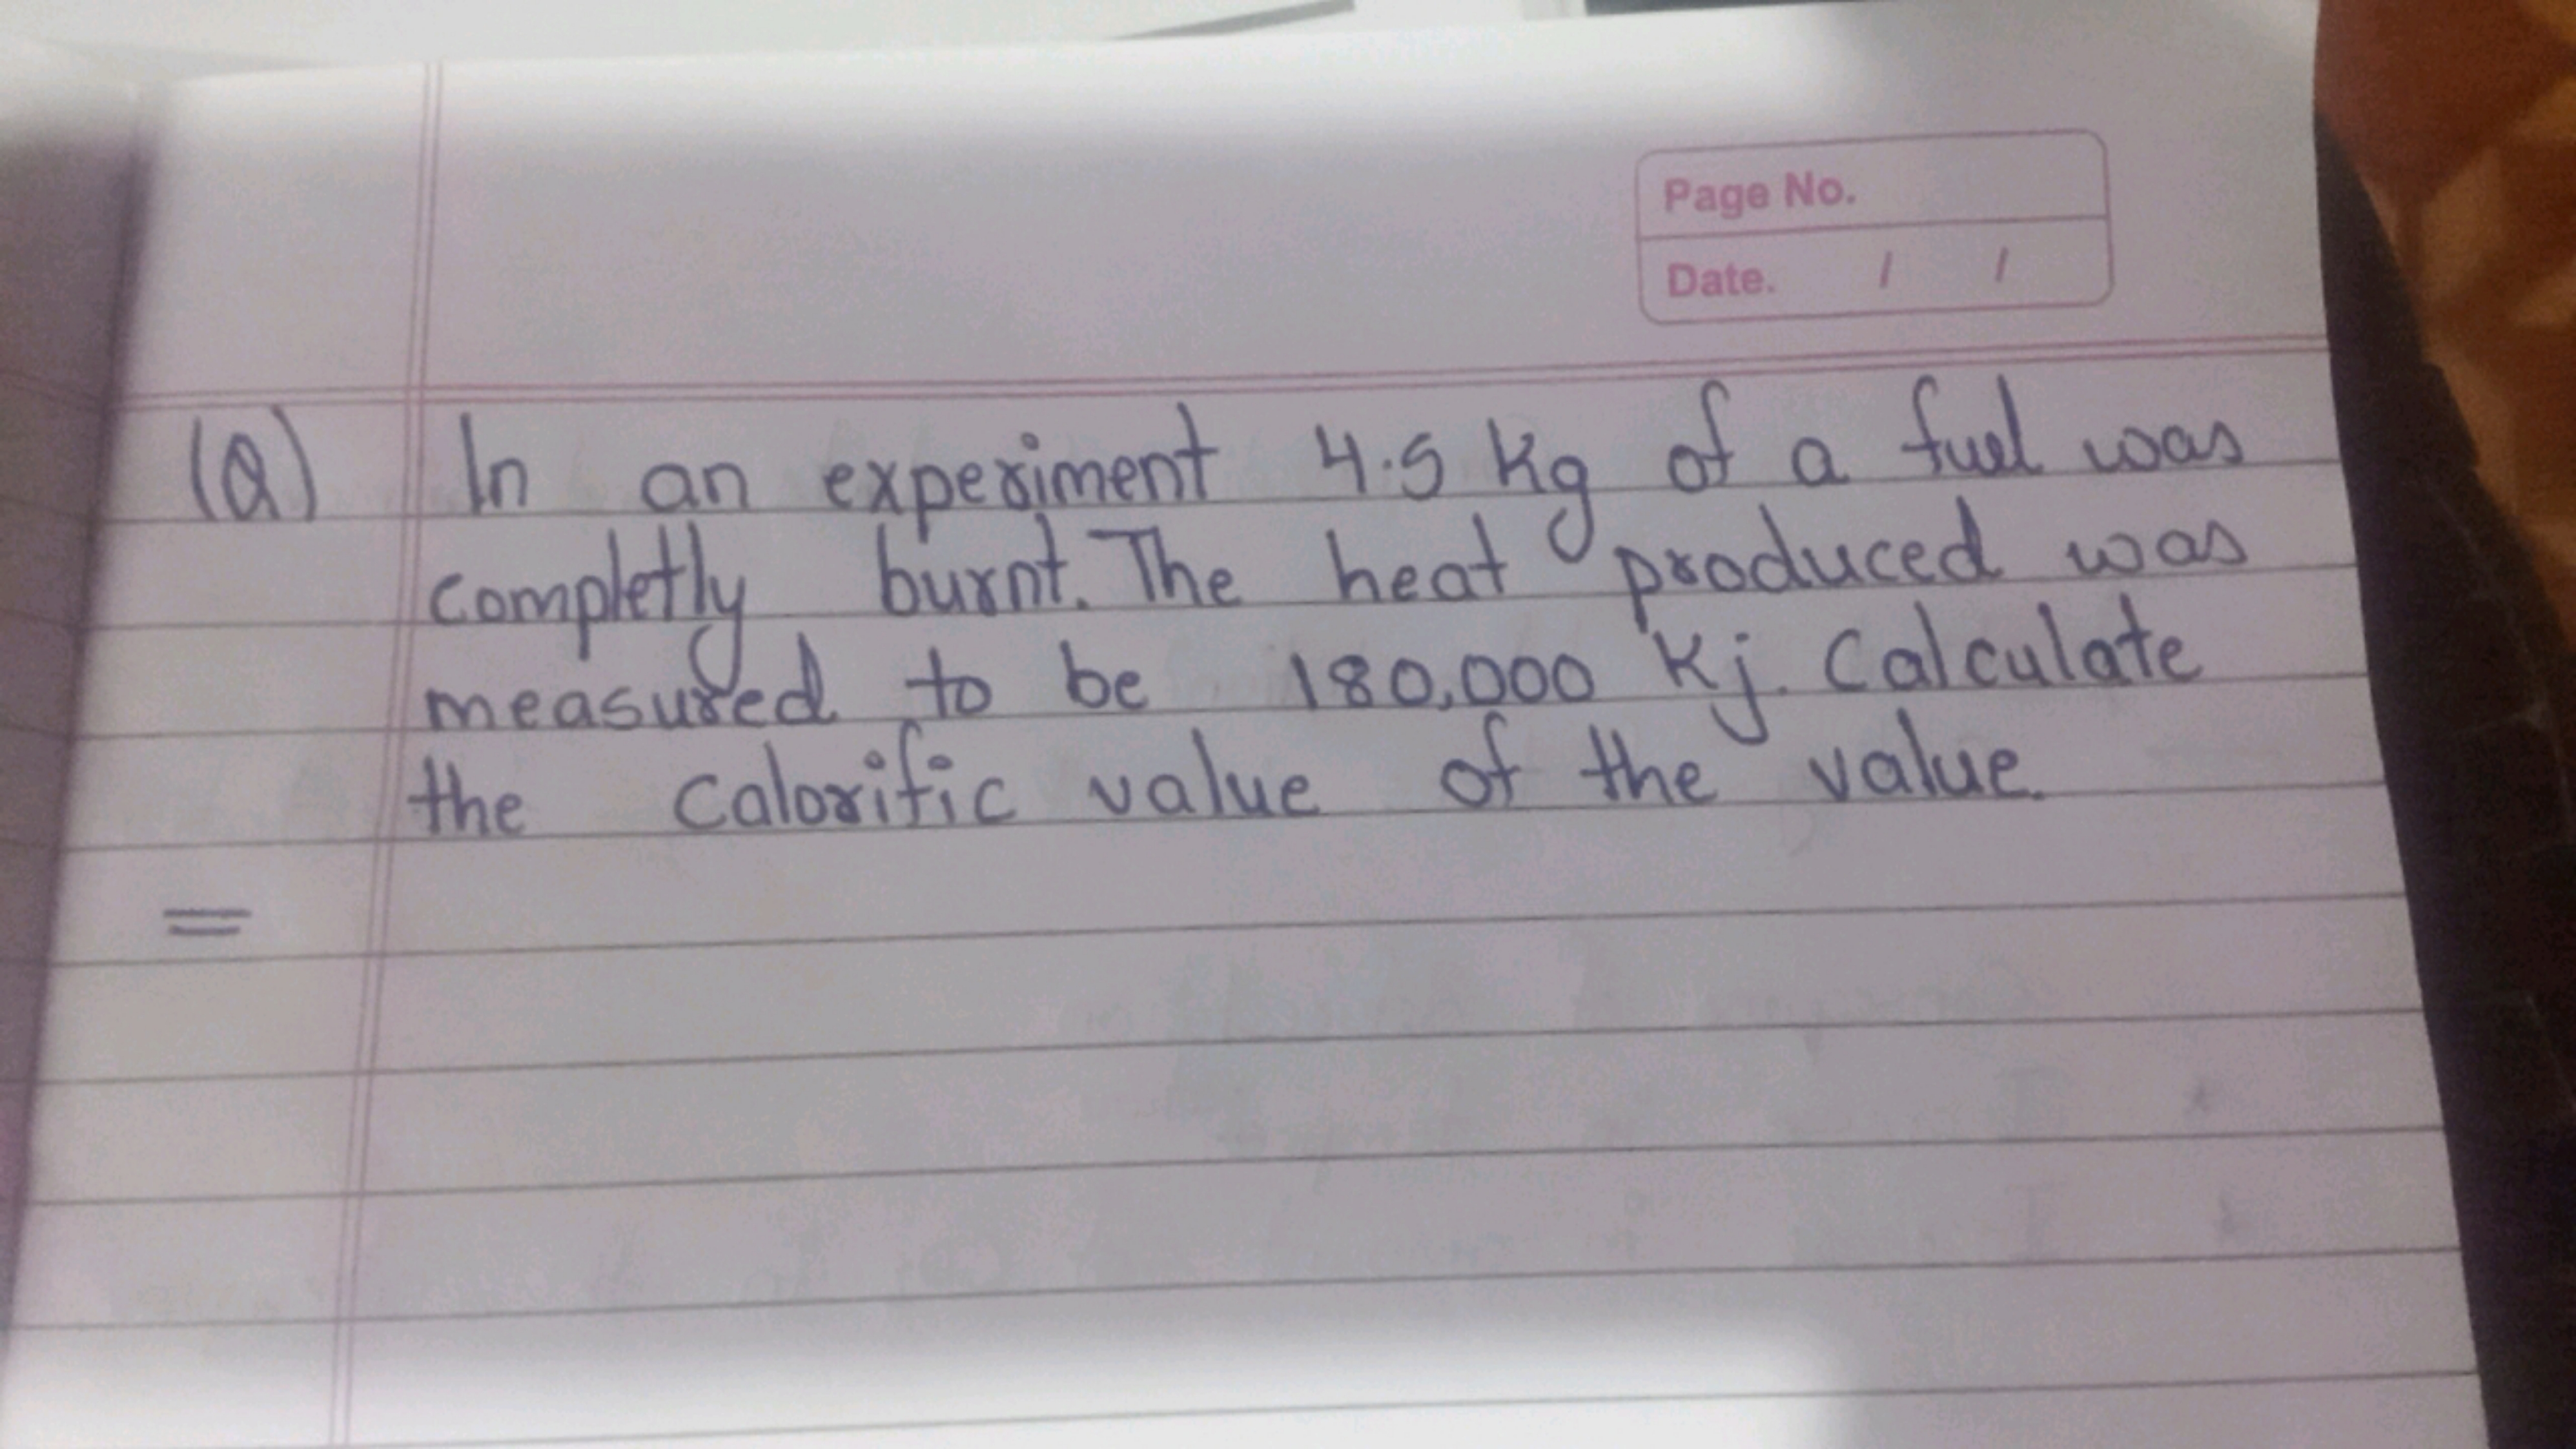 Page No.
Date. / /
(Q) In an experiment 4.5 Kg of a fuel was
completly burnt. The heat produced was
measured to be 180,000 Kj. Calculate
the calorific value of the value.
=